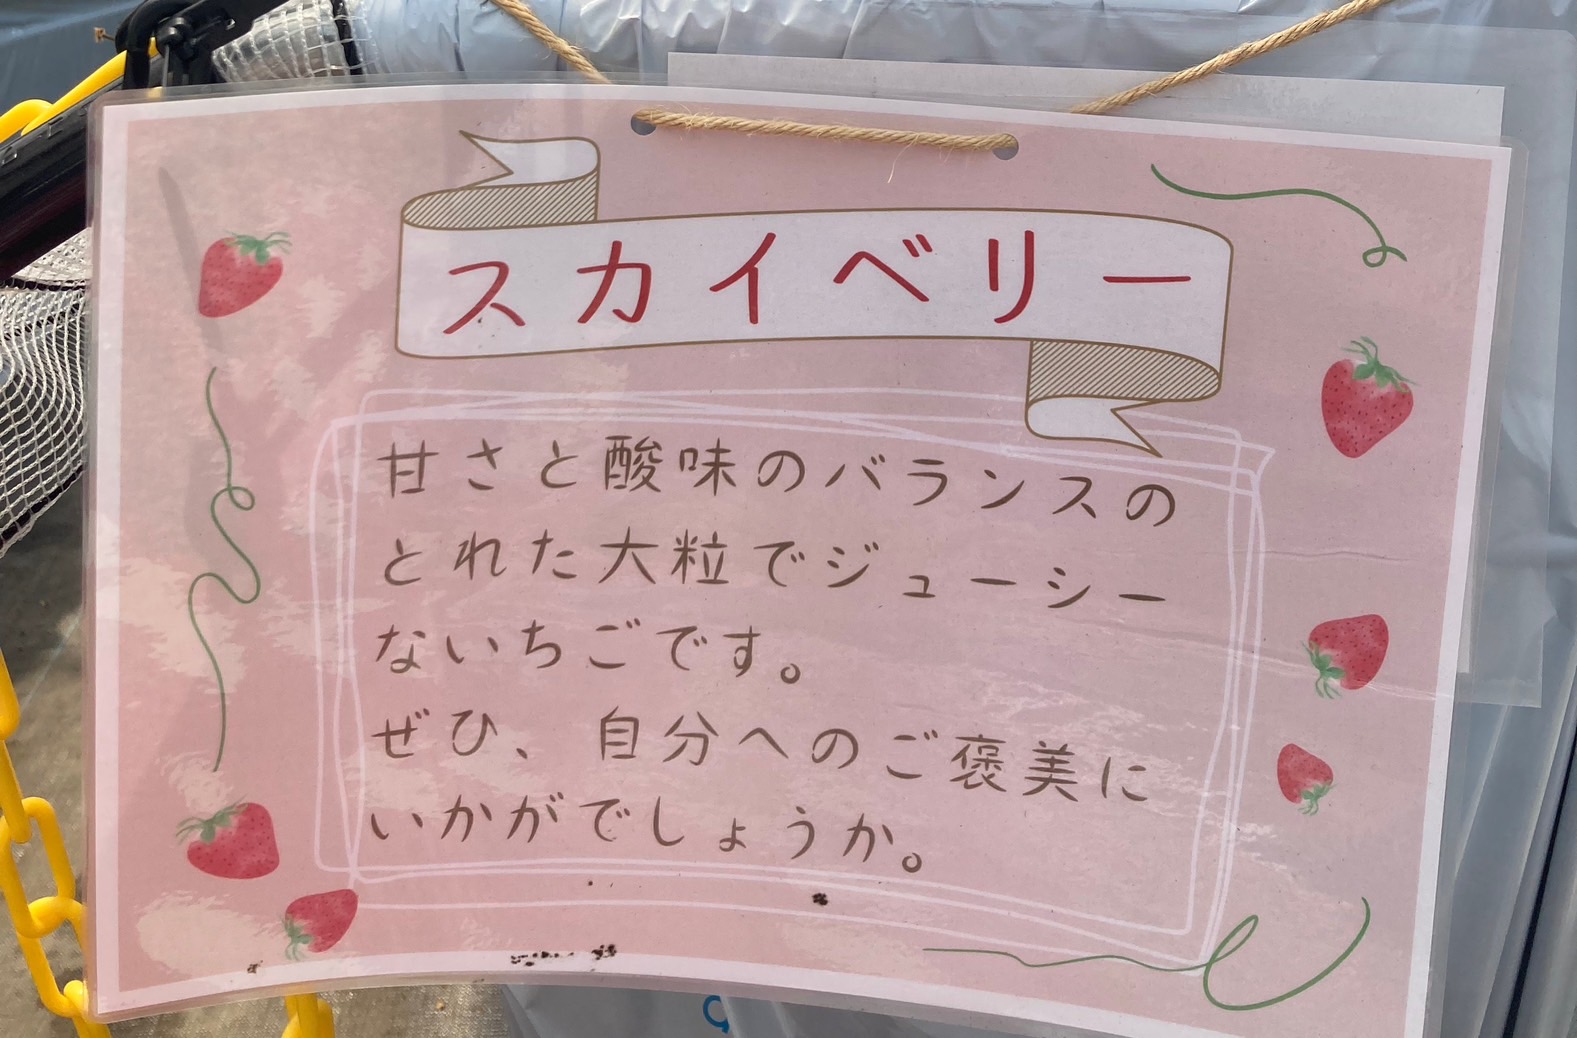 スカイベリー
甘さと酸味のバランスの
とれた大粒でジューシー
ないちごです。
ぜひ、自分へのご褒美に
いかがでしょうか。